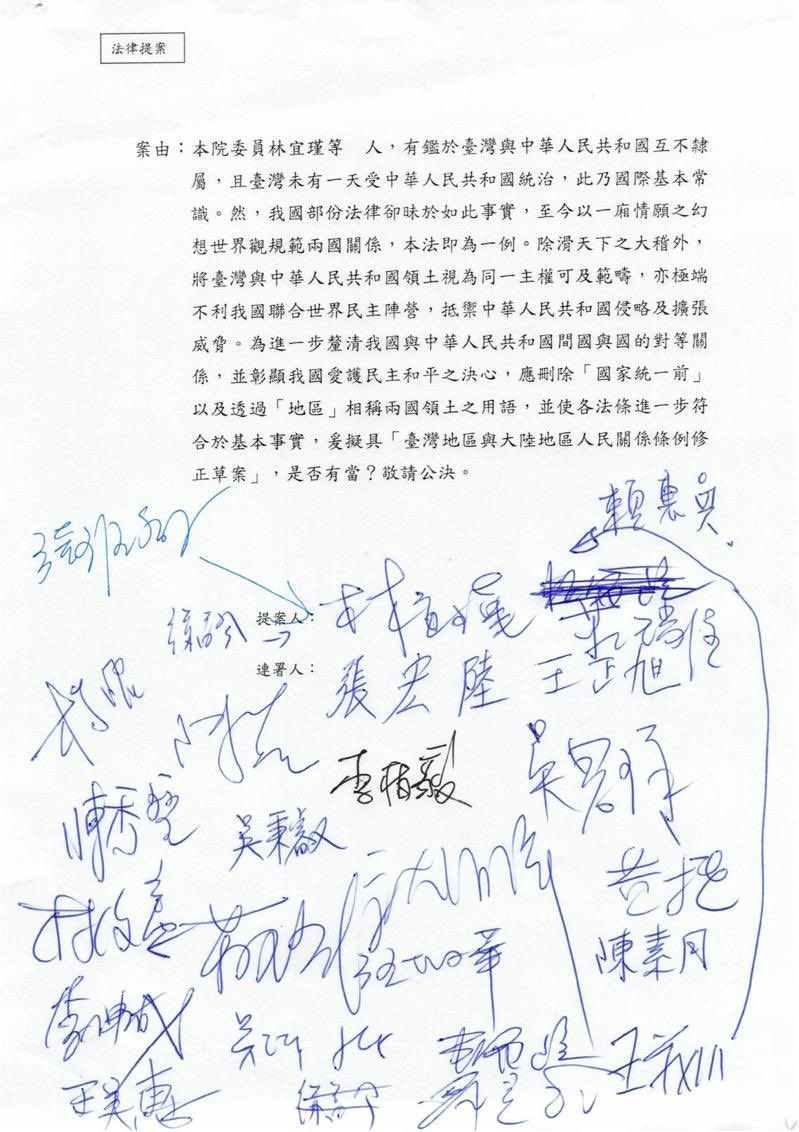 法律提案
案由：本院委員林宜瑾等　人，有鑑於臺灣與中華人民共和國互不隸
屬，且臺灣未有一天受中華人民共和國統治，此乃國際基本常
識。然，我國部份法律卻昧於如此事實，至今以一廂情願之幻
想世界觀規範兩國關係，本法即為一例。除滑天下之大稽外，
將臺灣與中華人民共和國領土視為同一主權可及範疇，亦極端
不利我國聯合世界民主陣營，抵禦中華人民共和國侵略及擴張
威脅。為進一步釐清我國與中華人民共和國間國與國的對等關
係，並彰顯我國愛護民主和平之決心，應刪除「國家統一前」
以及透過「地區」相稱兩國領土之用語，並使各法條進一步符
合於基本事實，爰擬具「臺灣地區與大陸地區人民關係條例修
正草案」，是否有當？敬請公決。
賴惠員
提案人：林宜瑾
連署人：張宏陸 王正旭
李柏毅 吳思瑤
陳秀寳 吳秉叡
陳素月
李坤城 王義川
王美惠